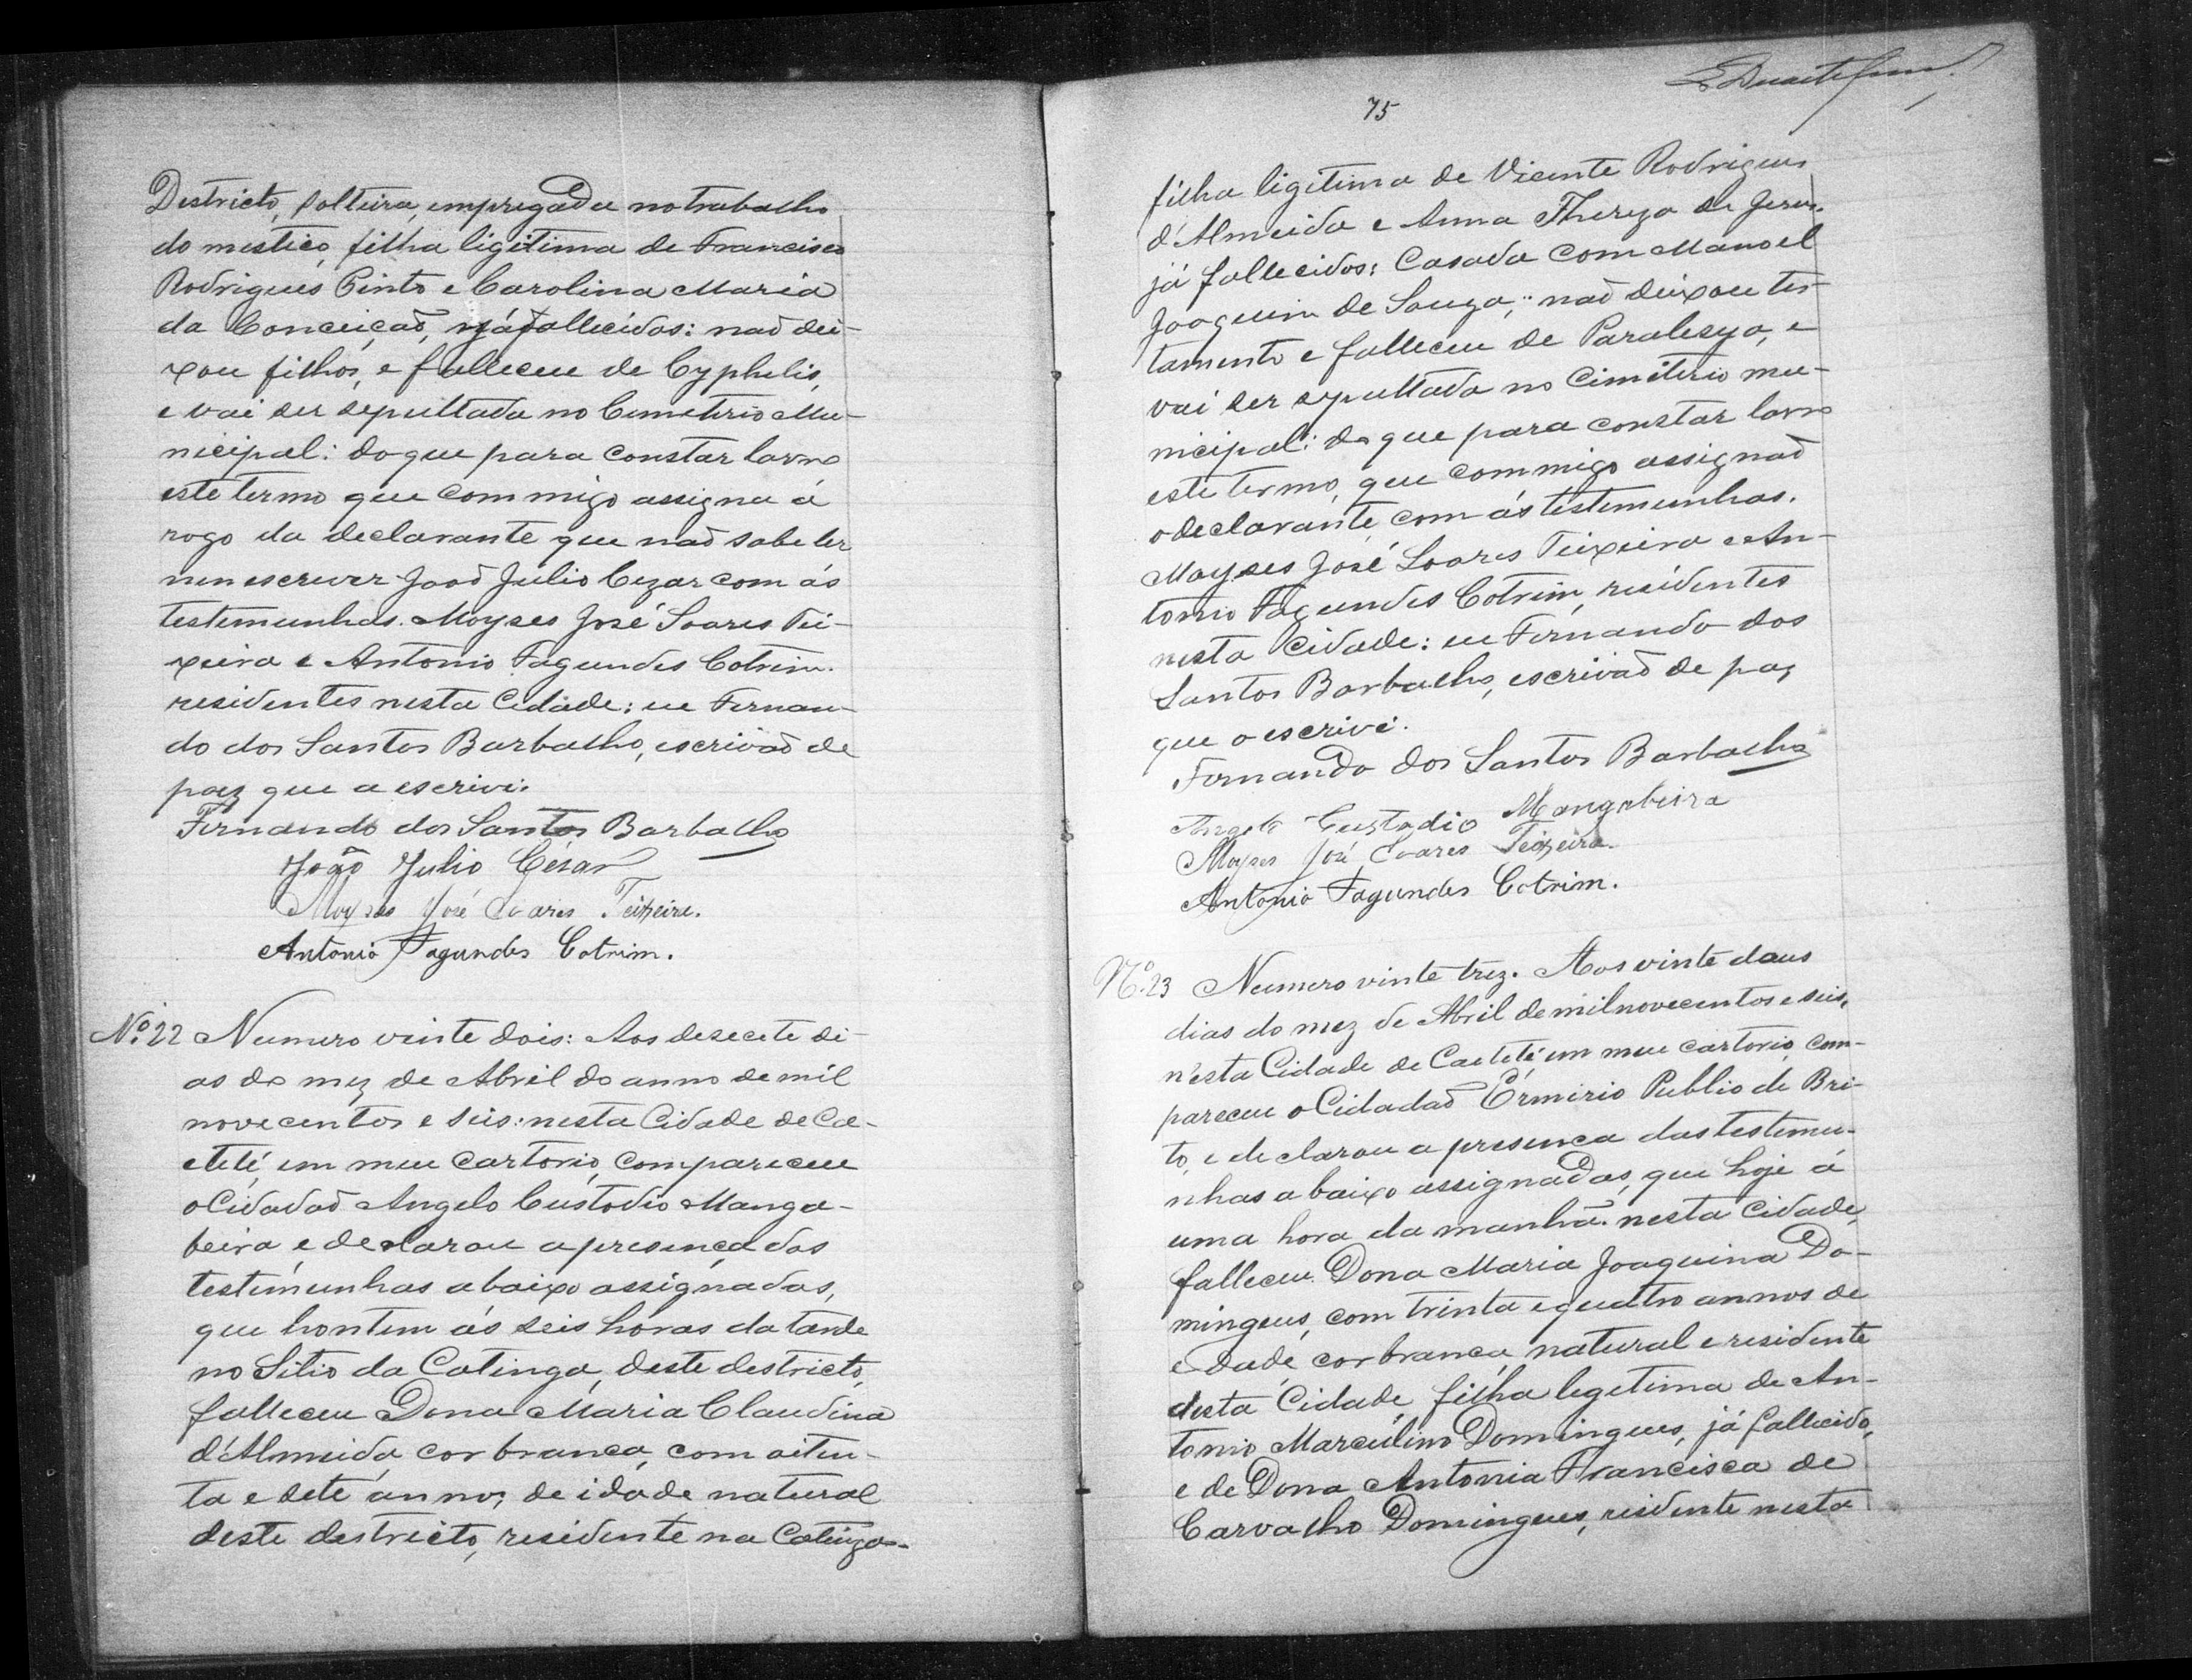 Destricto, solteira, empregada no trabalho
do mestico, filha ligitima de Francisco
Rodrigues Pinto e Carolina Maria
da Conceiçaõ, já fallecidos: naõ dei-
xou filhos, e falleceu de Cyphelis,
e vai ser sepultada no Cemeterio Mu-
nicipal: do que para constar lavro
este termo que commigo assigna á
rogo da declarante que naõ sabe ler
nem escrever Joaõ Julio Cezar com ás
testemunhas. Moyses José Soares Tei-
xeira e Antonio Fagundes Cotrim.
residentes nesta Cidade: eu Fernan-
do dos Santos Barbalho, escrivaõ de
paz que a escrivi.
Fernando dos Santos Barbalho
João Julio César
Moyses José Soares Teixeira.
Antonio Fagundes Cotrim.
Nº. 22 Numero vinte dois: Aos desecete di-
as do mez de Abril do anno de mil
novecentos e seis: nesta Cidade de Ca-
eteté, em meu Cartorio, compareceu
o Cidadaõ Angelo Custodio Manga-
beira e declarou a presença das
testemunhas abaixo assignadas,
que hontem ás seis horas da tarde
no Sitio da Catinga, deste destricto,
falleceu Dona Maria Claudina
d'Almeida cor branca, com oiten-
ta e sete annos de idade natural
deste destricto, residente na Catinga-
75
filha ligitima de Vicente Rodrigues
d'Almeida e Anna Thereza de Jesus.
já fallecidos: Casada com Manoel
Joaquim de Souza; naõ deixou tes-
tamento e falleceu de Paralesya, e
vai ser sepultada no Cimeterio mu-
nicipal: do que para constar lavro
este termo, que commigo assignaõ
o declarante com ás testemunhas.
Moyses José Soares Teixeira e An-
tonio Fagundes Cotrim, residentes
nesta Cidade: eu Fernando dos
Santos Barbalho, escrivaõ de paz
que o escrivi.
Fernando dos Santos Barbalho
Angelo Custodio Mangabeira
Moyses José Soares Teixeira.
Antonio Fagundes Cotrim.
Nº. 23 Numero vinte trez. Aos vinte dous
dias do mez de Abril de mil novecentos e seis,
n'esta Cidade de Caeteté, em meu cartorio com-
pareceu o Cidadaõ Ermirio Publio de Bri-
to, e declarou a presença das testemu-
nhas abaixo assignadas, que hoje á
uma hora da manhã. nesta Cidade,
falleceu Dona Maria Joaquina Do-
mingues, com trinta e quatro annos de
edade, cor branca, natural e residente
desta Cidade filha legetima de An-
tonio Marculino Domingues, já fallecido,
e de Dona Antonia Francisca de
Carvalho Domingues, residente nesta